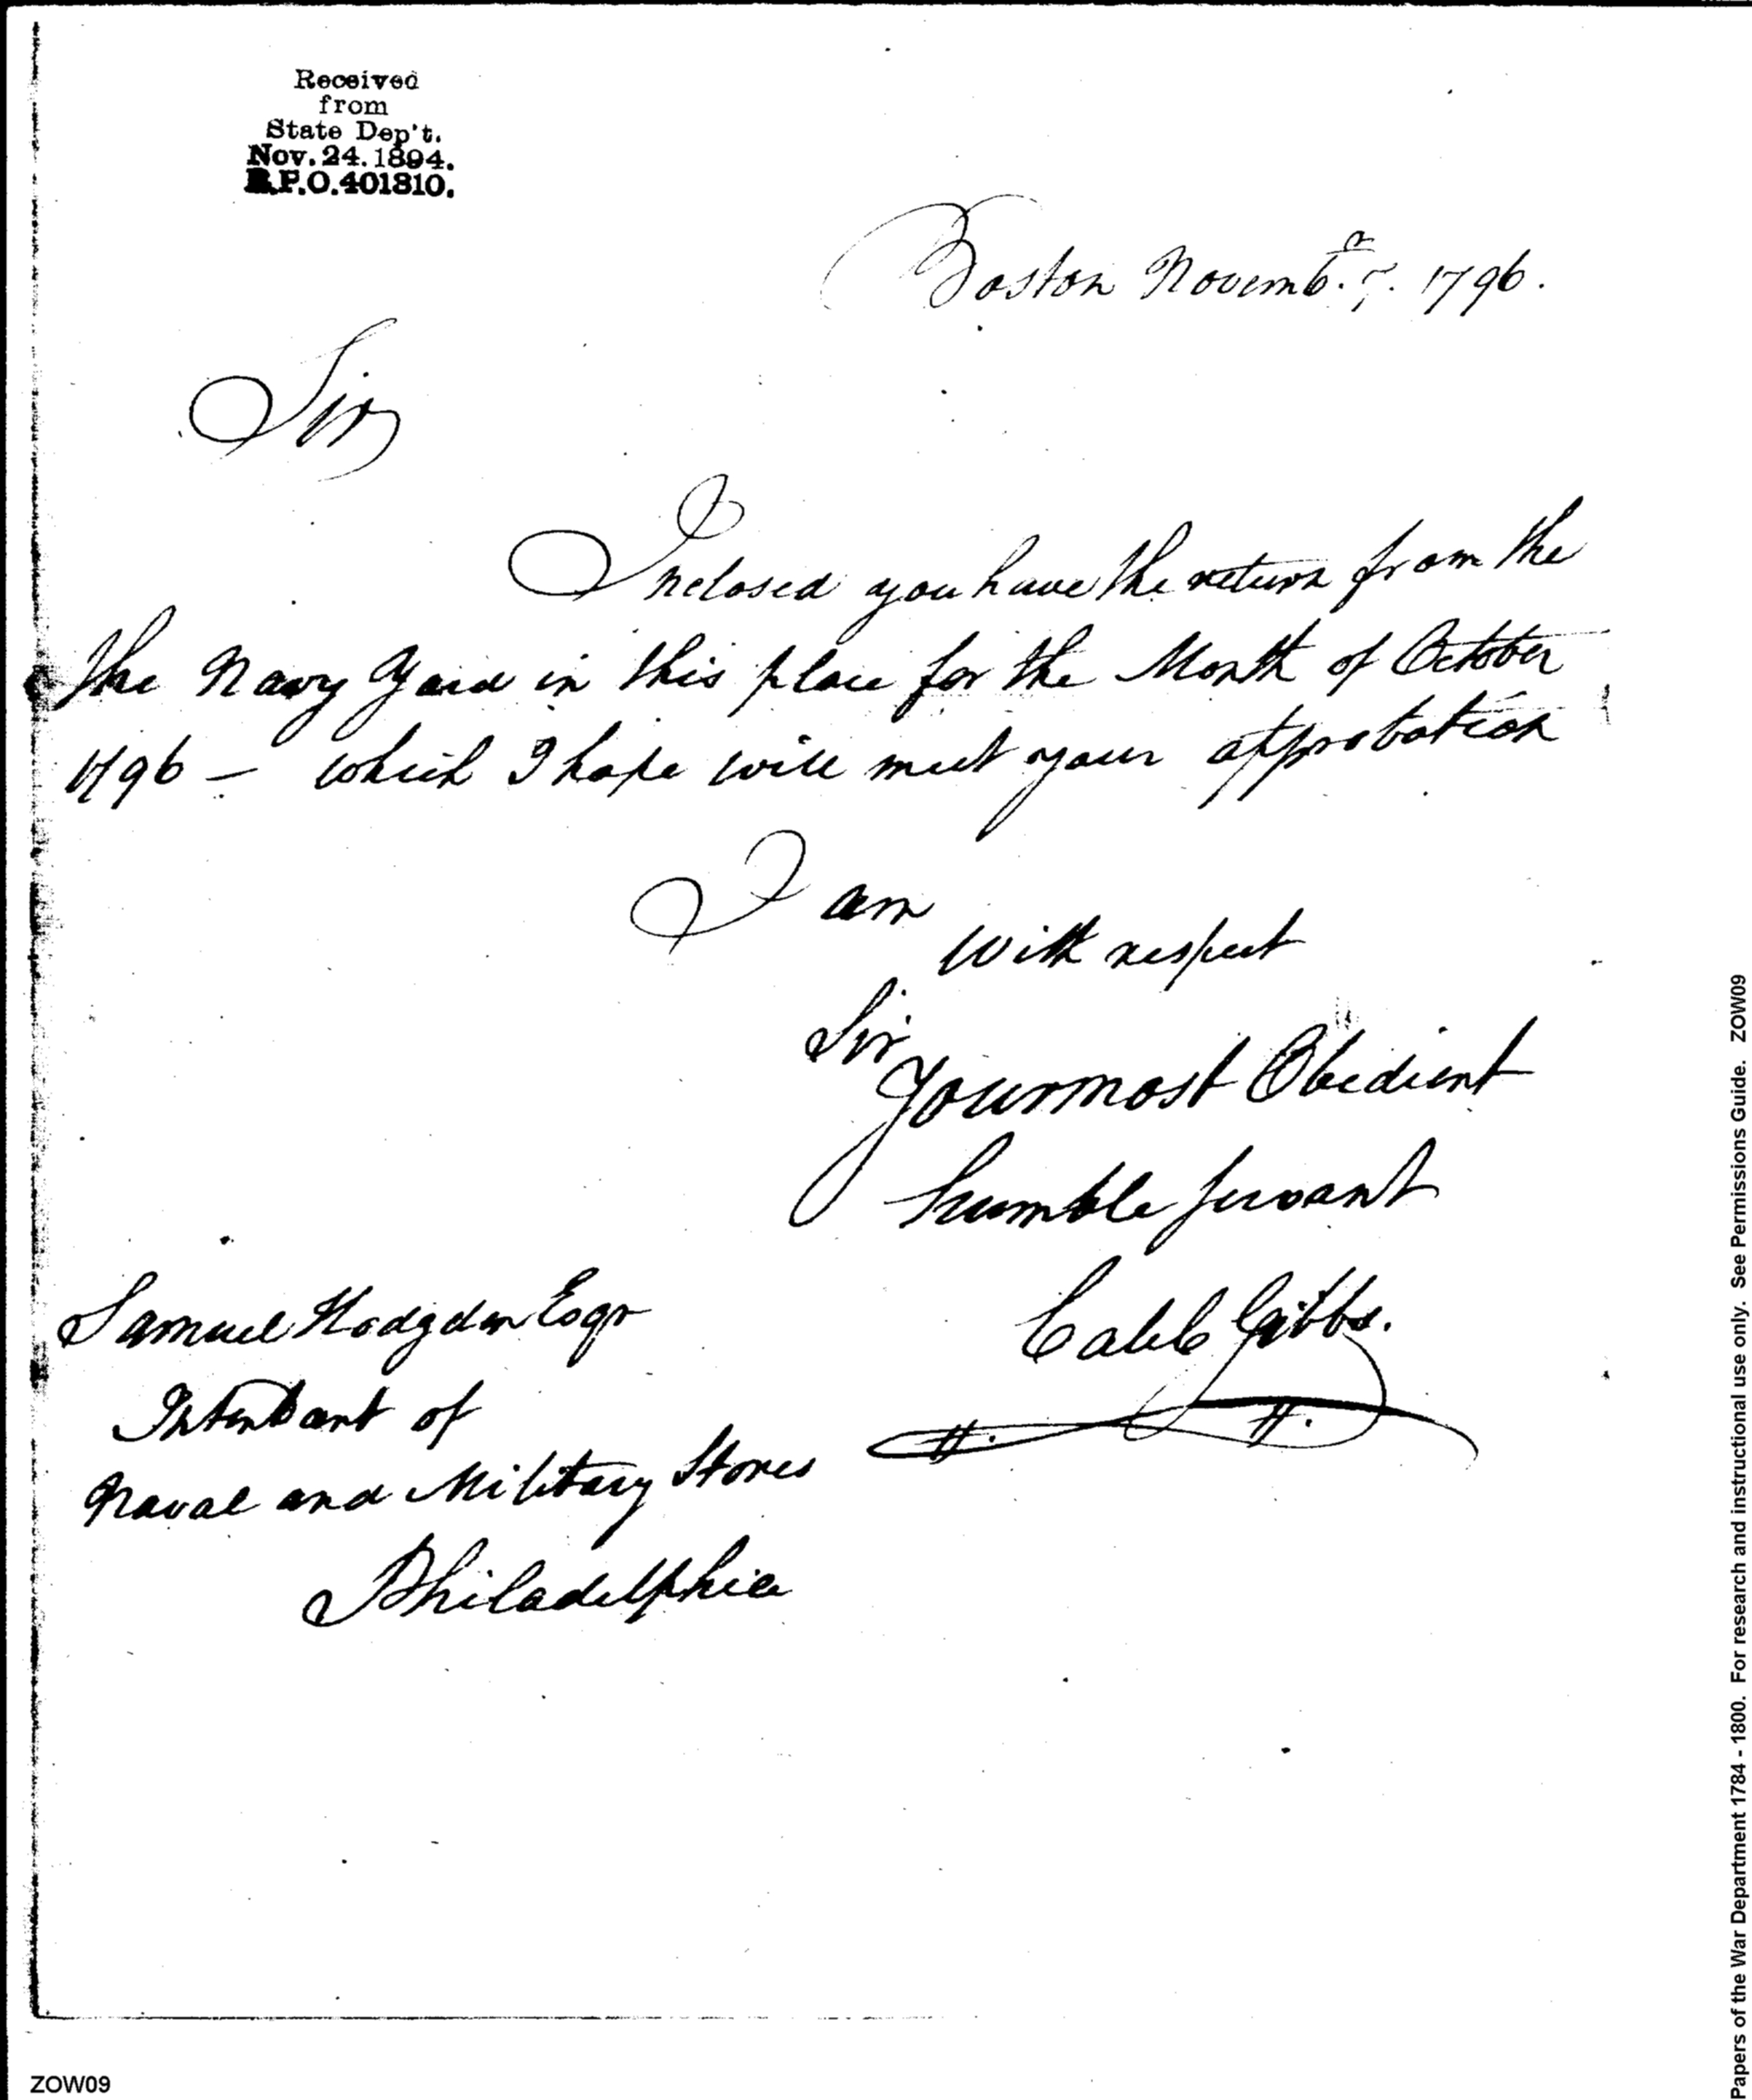 Received
from
State Dep't.
Nov. 24. 1894.
R.P.O. 401810.
Boston Novemb.r 7. 1796.
Sir
Inclosed you have the return from the
the Navy Yard in this place for the Month of October
1796 – which I hope will meet your approbation
I am
with respect
Sir
Your most Obedient
humble servant
Caleb Gibbs.
Samuel Hodgdon Esqr
Intendant of
Naval and Military Stores
Philadelphia
ZOW09
Papers of the War Department 1784 - 1800. For research and instructional use only. See Permissions Guide. ZOW09